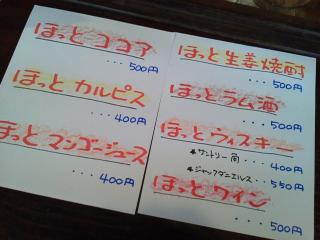 ほっと ココア
・・・500円
ほっと カルピス
・・・400円
ほっと マンゴージュース
・・・400円
ほっと 生姜焼酎
・・・500円
ほっと ラム酒
・・・500円
ほっと ウィスキー
★サントリー角・・・400円
★ジャックダニエルス・・・550円
ほっと ワイン
・・・500円